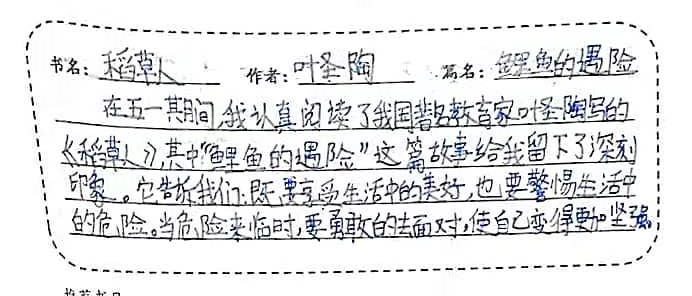 书名：稻草人 作者：叶圣陶 篇名：鲤鱼的遇险
在五一期间，我认真阅读了我国著名教育家叶圣陶写的
《稻草人》，其中“鲤鱼的遇险”这篇故事给我留下了深刻
印象。它告诉我们：既要享受生活中的美好，也要警惕生活中
的危险。当危险来临时，要勇敢的去面对，使自己变得更加坚强。